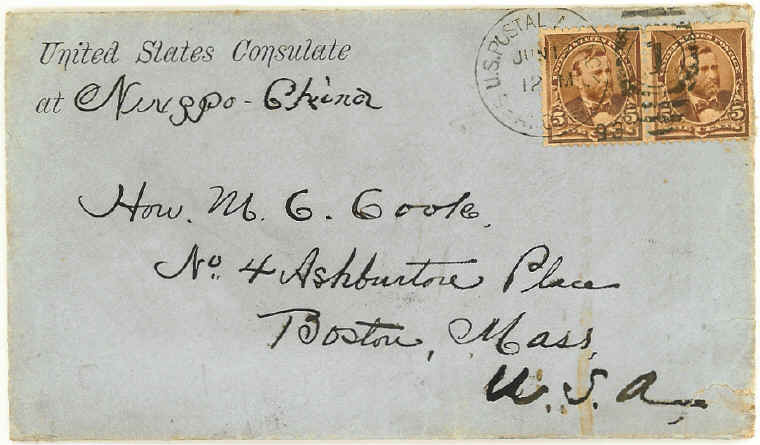 United States Consulate
at Ningpo - China
U.S. POSTAL A
JUN
12 M
93
5 5
5 5
Hon. M. C. Cook.
No. 4 Ashburton Place
Boston, Mass.
U.S.A.